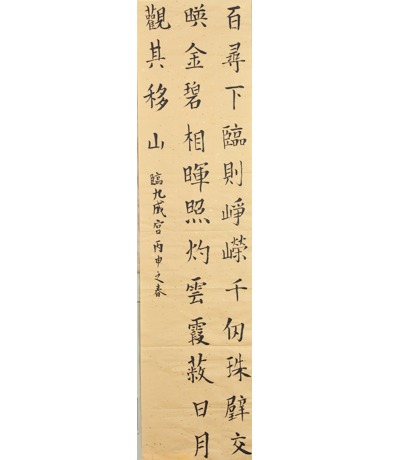 百尋下臨則崢嶸千仞珠壁交
暎金碧相暉照灼雲霞蔽日月
觀其移山
臨九成宮丙申之春